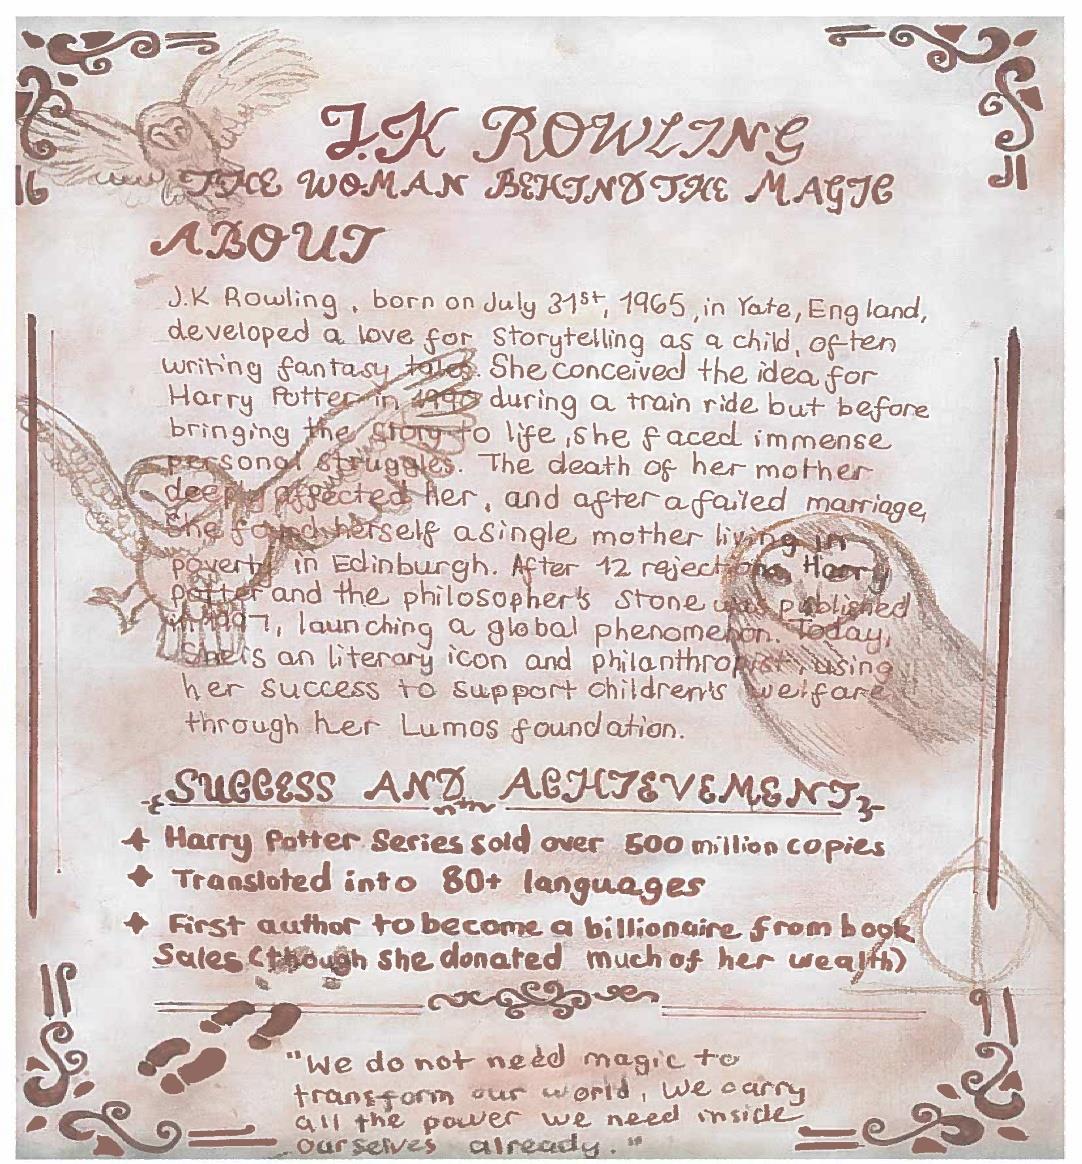 J.K ROWLING
THE WOMAN BEHIND THE MAGIC
ABOUT
J.K Rowling, born on July 31st, 1965, in Yate, England,
developed a love for storytelling as a child, often
writing fantasy tales. She conceived the idea for
Harry Potter in 1990 during a train ride but before
bringing the story to life, she faced immense
personal struggles. The death of her mother
deeply affected her, and after a failed marriage,
She found herself a single mother living in
poverty in Edinburgh. After 12 rejections Harry
potter and the philosopher's Stone was published
in 1997, launching a global phenomenon. Today,
She is an literary icon and philanthropist, using
her success to support children's welfare
through her Lumos foundation.
SUCCESS AND ACHIEVEMENTS
Harry Potter Series sold over 500 million copies
Translated into 80+ languages
First author to become a billionaire from book
Sales (though she donated much of her wealth)
"We do not need magic to
transform our world, We carry
all the power we need inside
ourselves already."